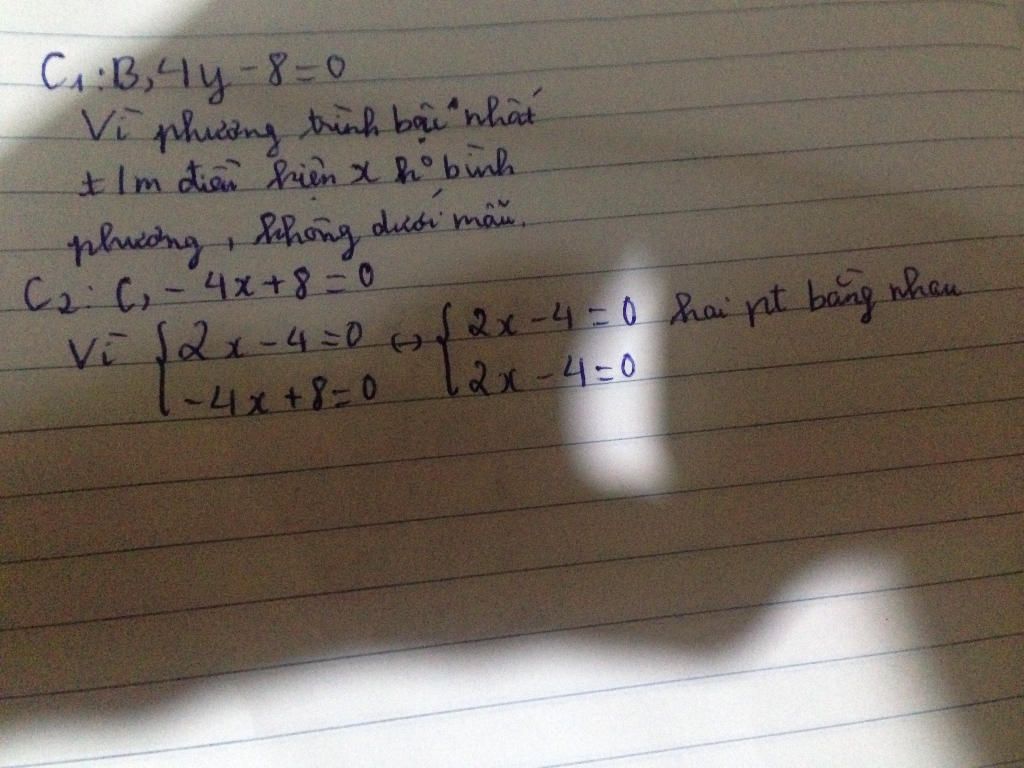 C1: B, 4y - 8 = 0
Vì phương trình bậc nhất
t/m điều kiện x ko bình
phương, không dưới mẫu.
C2: C, - 4x + 8 = 0
Vì { 2x - 4 = 0 ↔ { 2x - 4 = 0 hai pt bằng nhau
- 4x + 8 = 0 2x - 4 = 0